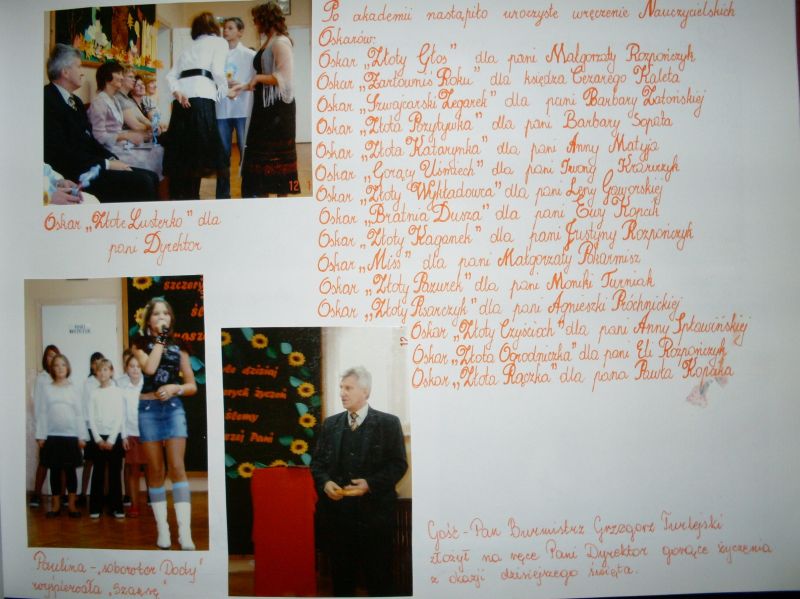 Po akademii nastąpiło uroczyste wręczenie Nauczycielskich
Oskarów:
Oskar „Złoty Głos" dla pani Małgorzaty Rozpończyk
Oskar „Żartowniś Roku" dla księdza Cezarego Kaleta
Oskar „Szwajcarski Zegarek" dla pani Barbary Zatońskiej
Oskar „Złota Pozytywka" dla pani Barbary Sopata
Oskar „Złota Katarynka" dla pani Anny Matyja
Oskar „Gorący Uśmiech" dla pani Iwony Krawczyk
Oskar „Złoty Wykładowca" dla pani Leny Gaworskiej
Oskar „Bratnia Dusza" dla pani Ewy Kopcik
Oskar „Złoty Kaganek" dla pani Justyny Rozpończyk
Oskar „Miss" dla pani Małgorzaty Pokarmisz
Oskar „Złoty Pazurek" dla pani Moniki Turniak
Oskar „Złoty Pisarczyk" dla pani Agnieszki Próchnickiej
Oskar „Złoty Czyścioch" dla pani Anny Spławińskiej
Oskar „Złota Ogrodniczka" dla pani Eli Rozpończyk
Oskar „Złota Rączka" dla pana Pawła Kopcika
Oskar „Złote Lusterko" dla
pani Dyrektor
szczery
Śl
nasze
dzisiaj
życzeń
Ślemy
Pani
Paulina - „sobowtór Dody"
wyśpiewała „Szansę"
Gość - Pan Burmistrz Grzegorz Turlejski
złożył na ręce Pani Dyrektor gorące życzenia
z okazji dzisiejszego święta.